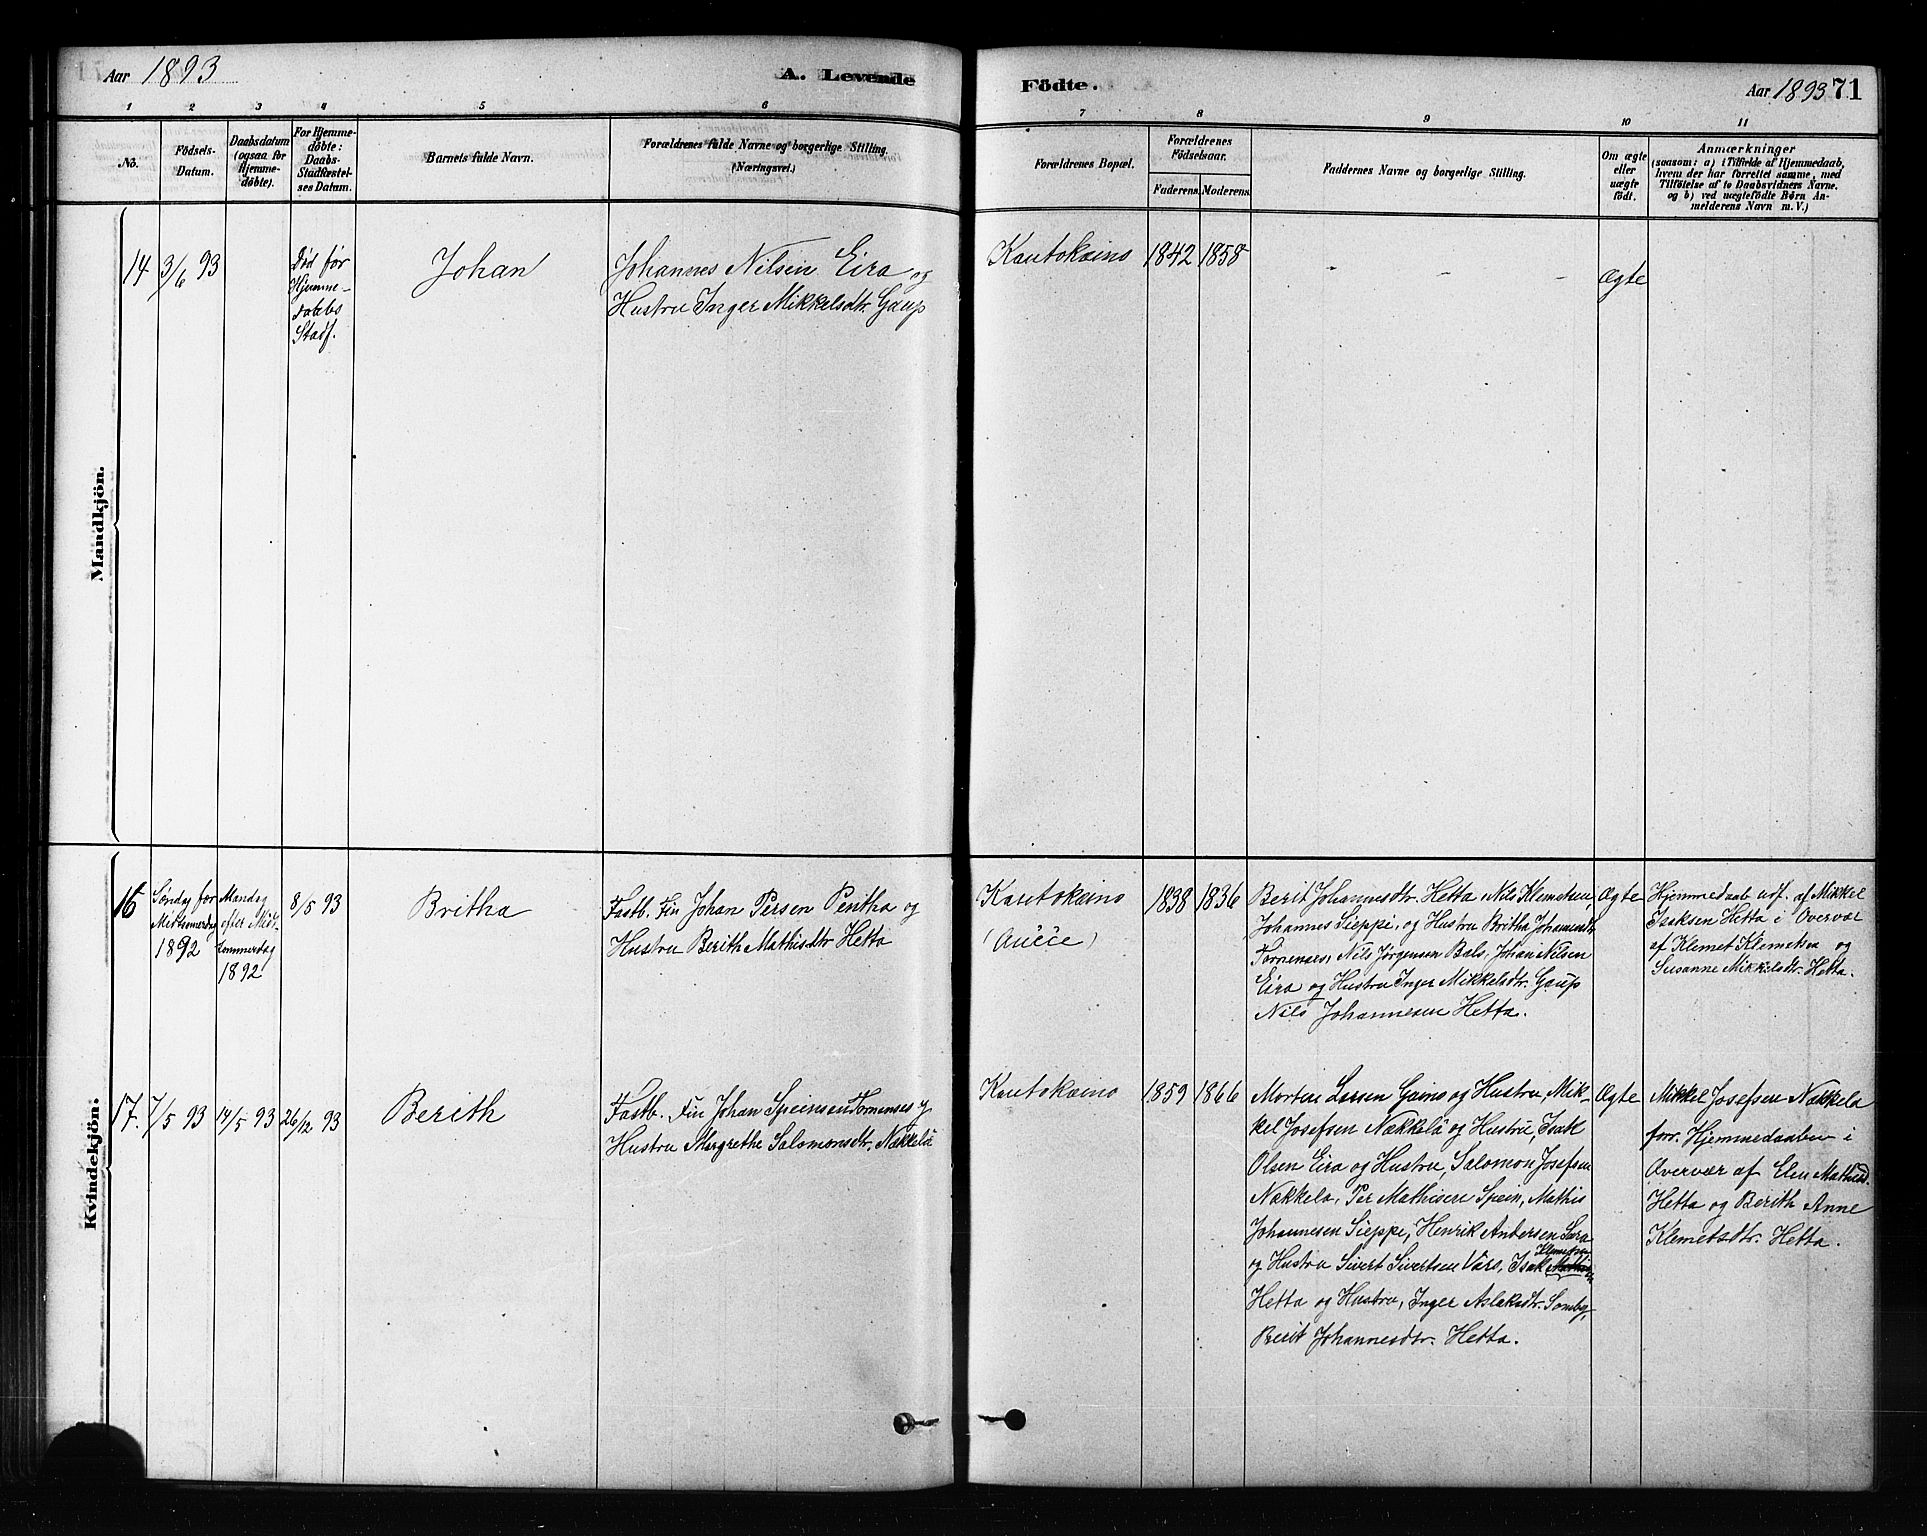 Aar 1893
A. Levende
Födte.
Aar 1893 71
1 2 3 4 5 6 7 8 9 10 11
No.
Födsels-
Datum.
Daabsdatum
(ogsaa for
Hjemme-
döbte).
For Hjemme-
döbte:
Daabs-
Stadfæstel-
ses Datum.
Barnets fulde Navn.
Forældrenes fulde Navne og borgerlige Stilling.
(Næringsvei.)
Forældrenes Bopæl.
Forældrenes
Födselsaar.
Faderens. Moderens.
Faddernes Navne og borgerlige Stilling.
Om ægte
eller
uægte
födt.
Anmærkninger
(saasom: a) i Tilfælde af Hjemmedaab,
hvem der har forrettet samme, med
Tilföielse af to Daabsvidners Navne,
og b) ved uægtefödte Börn An-
melderens Navn m. V.)
Mandkjön.
14
3/6 93
Död for
Hjemme-
daabs
Stadf.
Johan
Johannes Nilsen Eira og
Hustru Inger Mikkelsdtr. Gaup
Kautokeino
1842 1858
- - -
Ægte
Kvindekjön.
16
Søndag før
Midtsomerdag
1892
Mandag
efter Midt-
sommerdag
1892
8/5 93
Britha
Fastb. Fin Johan Persen Pentha og
Hustru Berith Mathisdtr Hetta
Kautokeino
(Aučče)
1838 1836
Berit Johannesdtr. Hetta, Nils Klemetsen
Johannes Sieppi, og Hustru Britha Johannesdtr
Fornenses, Nils Jørgensen Bals, Johan Nilsen
Eira og Hustru Inger Mikkelsdtr. Gaup
Nils Johannesen Hetta.
Ægte
Hjemmedaab udf. af Mikkel
Isaksen Hetta i Overvær
af Klemet Klemetsen og
Susanne Mikkelsdtr. Hetta.
17.
7/5 93
14/5 93
26/12 93
Berith
Fastb. Fin Johan Speinsen Fornenses og
Hustru Margrethe Salomonsdtr. Nakkelä
Kautokeino
1859 1866
Morten Larsen Gaino og Hustru, Mik-
kel Josefsen Nakkelä og Hustru, Isak
Olsen Eira og Hustru, Salomon Josefsen
Nakkela, Per Mathisen Spein, Mathis
Johannesen Sieppi, Henrik Andersen Sara
og Hustru Sivert Sivertsen Vars, Isak Klemetsen
Hetta og Hustru, Inger Aslaksdtr. Somby,
Berit Johannesdtr. Hetta.
Ægte
Mikkel Josefsen Nakkela
forr. Hjemmedaaben i
Overvær af Elen Mathisd.
Hetta og Berith Anne
Klemetsdtr. Hetta.